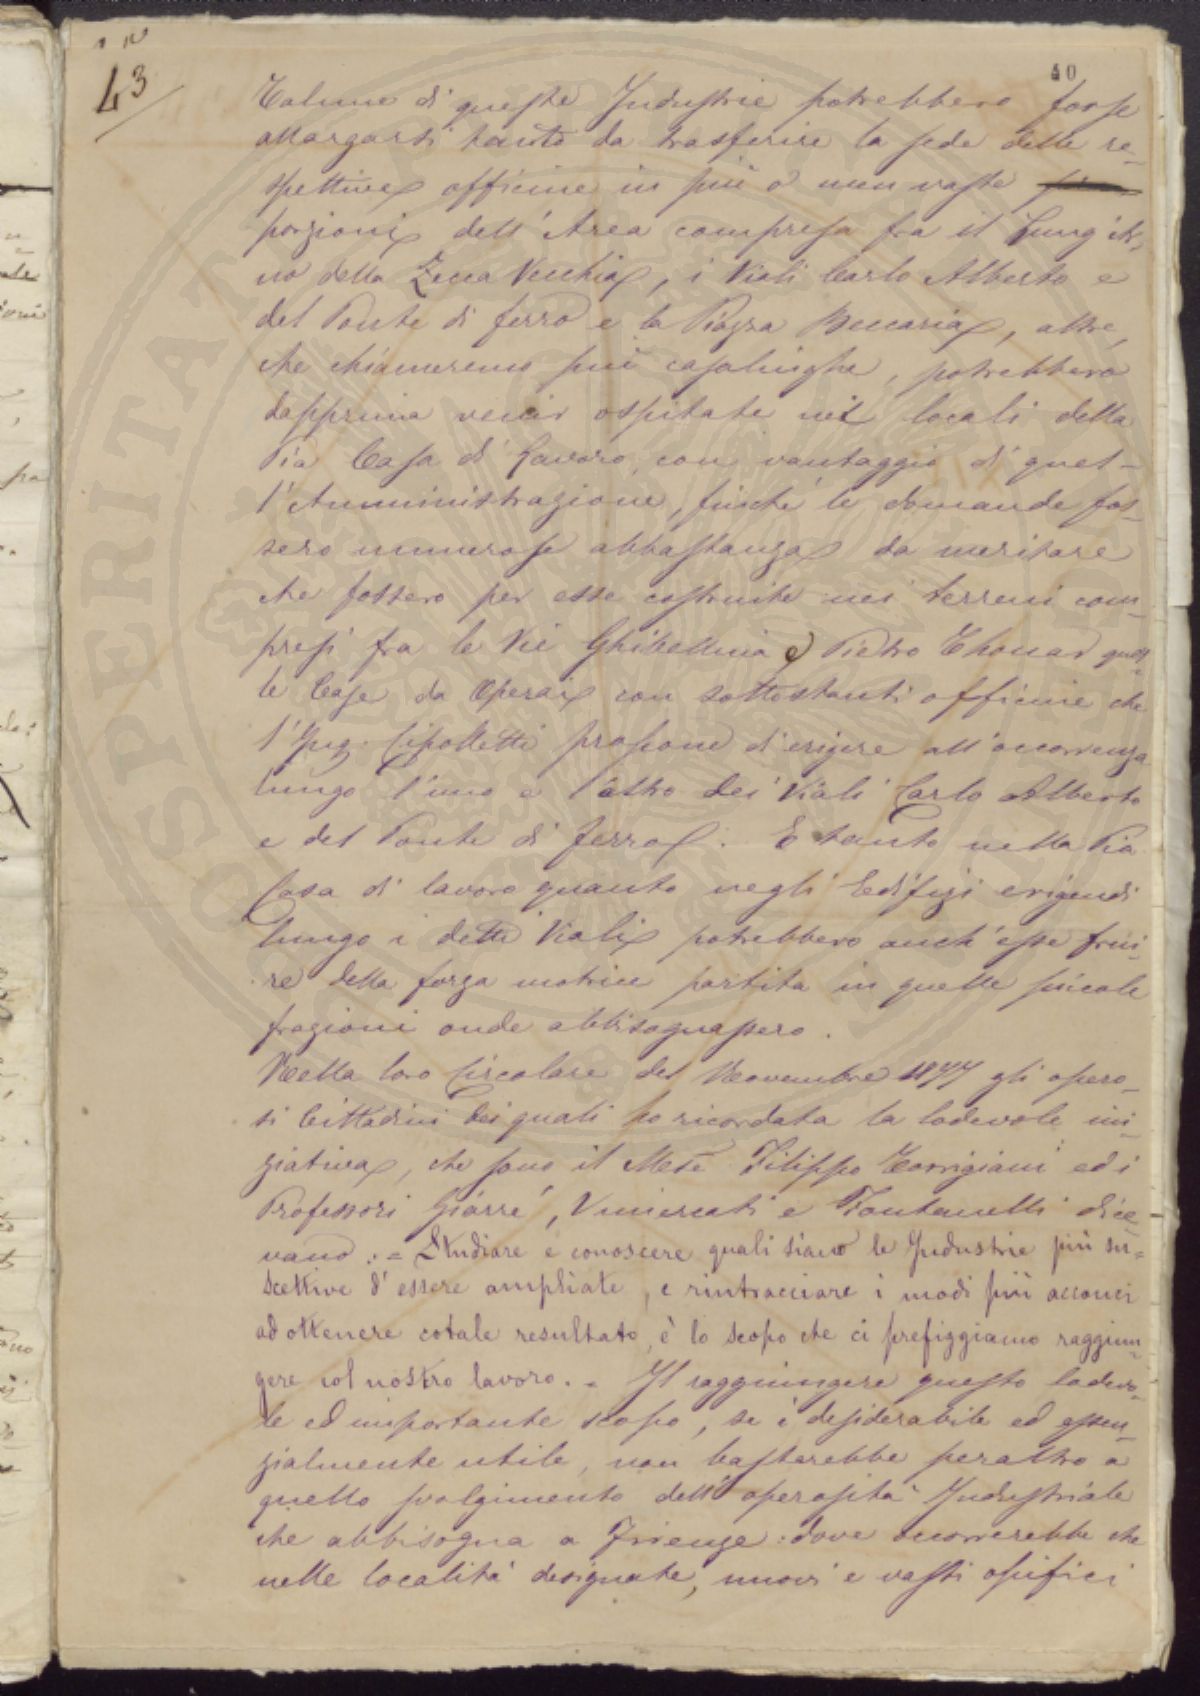 43
40
Talune di queste Industrie potrebbero forse
allargarsi tanto da trasferire la sede delle re-
spettive officine in più o men vaste
porzioni dell'Area compresa fra il Lung'Ar-
no della Zecca Vecchia, i Viali Carlo Alberto e
del Ponte di ferro e la Piazza Beccaria, altre,
che chiameremo più casalinghe, potrebbero
dapprima venir ospitate nei locali della
Pia Casa di Lavoro, con vantaggio di quel-
l'Amministrazione, finché le domande fos-
sero numerose abbastanza da meritare
che fossero per esse costruite nei terreni com-
presi fra le Vie Ghibellina e Pietro Thouar quel-
le Case da Operai con sottostanti officine che
l'Ing. Cipolletti propone d'erigere all'occorrenza
lungo l'uno e l'altro dei Viali Carlo Alberto
e del Ponte di ferro. E tanto nella Pia
Casa di lavoro quanto negli Edifizi erigendi
lungo i detti Viali potrebbero anch'esse frui-
re della forza motrice partita in quelle piccole
frazioni onde abbisognassero.
Nella loro Circolare del Novembre 1877 gli opero-
si Cittadini dei quali ho ricordata la lodevole ini-
ziativa, che sono il March.se Filippo Torrigiani ed i
Professori Giarré, Vimercati e Fontanelli dice-
vano: = Studiare e conoscere quali siano le Industrie più su-
scettive d'essere ampliate, e rintracciare i modi più acconci
ad ottenere cotale resultato, è lo scopo che ci prefiggiamo raggiun-
gere col nostro lavoro. = Il raggiungere questo lodevo-
le ed importante scopo, se è desiderabile ed essen-
zialmente utile, non basterebbe peraltro a
quello svolgimento dell'operosità Industriale
che abbisogna a Firenze: dove occorrerebbe che
nelle località designate, nuovi e vasti opifici